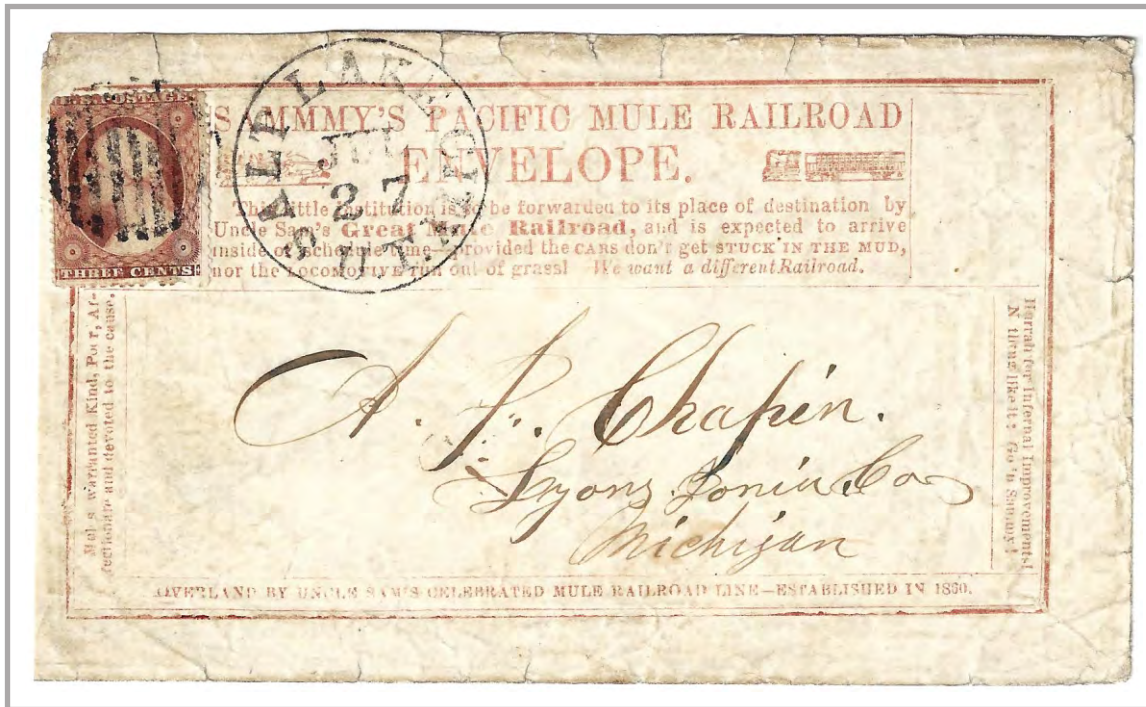 U.S. POSTAGE
THREE CENTS
SALT LAKE CITY
JUL
27
UTAH
SAMMMY'S PACIFIC MULE RAILROAD
ENVELOPE.
This little institution is to be forwarded to its place of destination by
Uncle Sam's Great Mule Railroad, and is expected to arrive
inside of schedule time—provided the CARS don't get STUCK IN THE MUD,
nor the LOCOMOTIVE run out of grass! We want a different Railroad.
Mules warranted Kind, Poor, Af-
fectionate and devoted to the cause.
A. J. Chapin.
Lyons. Ionia. Co
Michigan
Hurrah for Infernal Improvements!
Nothing like it: Go in Sammy!
OVERLAND BY UNCLE SAM'S CELEBRATED MULE RAILROAD LINE—ESTABLISHED IN 1850.